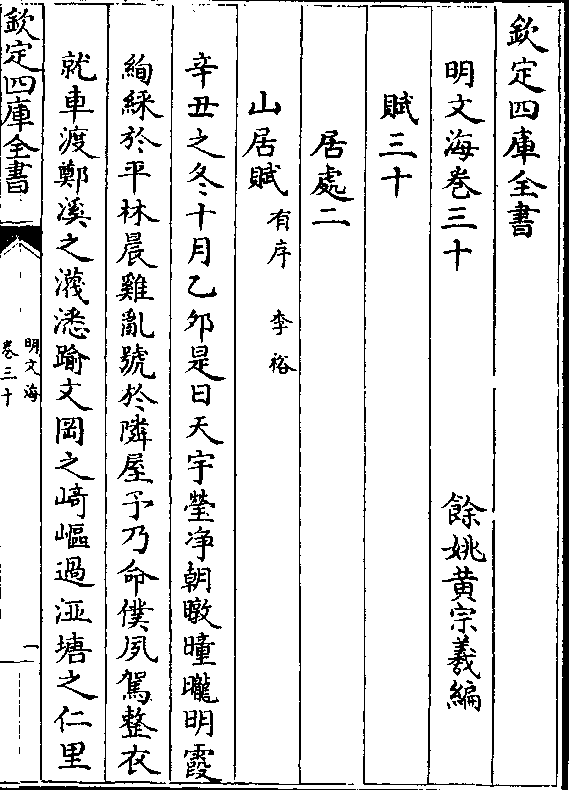 欽定四庫全書
明文海卷三十　餘姚黄宗羲編
賦三十
居處二
山居賦有序　李裕
辛丑之冬十月乙卯是日天宇瑩净朝暾曈曨明霞
絢綵於平林晨雞亂號於隣屋予乃命僕夙駕整衣
就車渡鄭溪之濺濍踰文岡之﨑嶇過洍塘之仁里
欽定四庫全書
明文海
卷三十
一